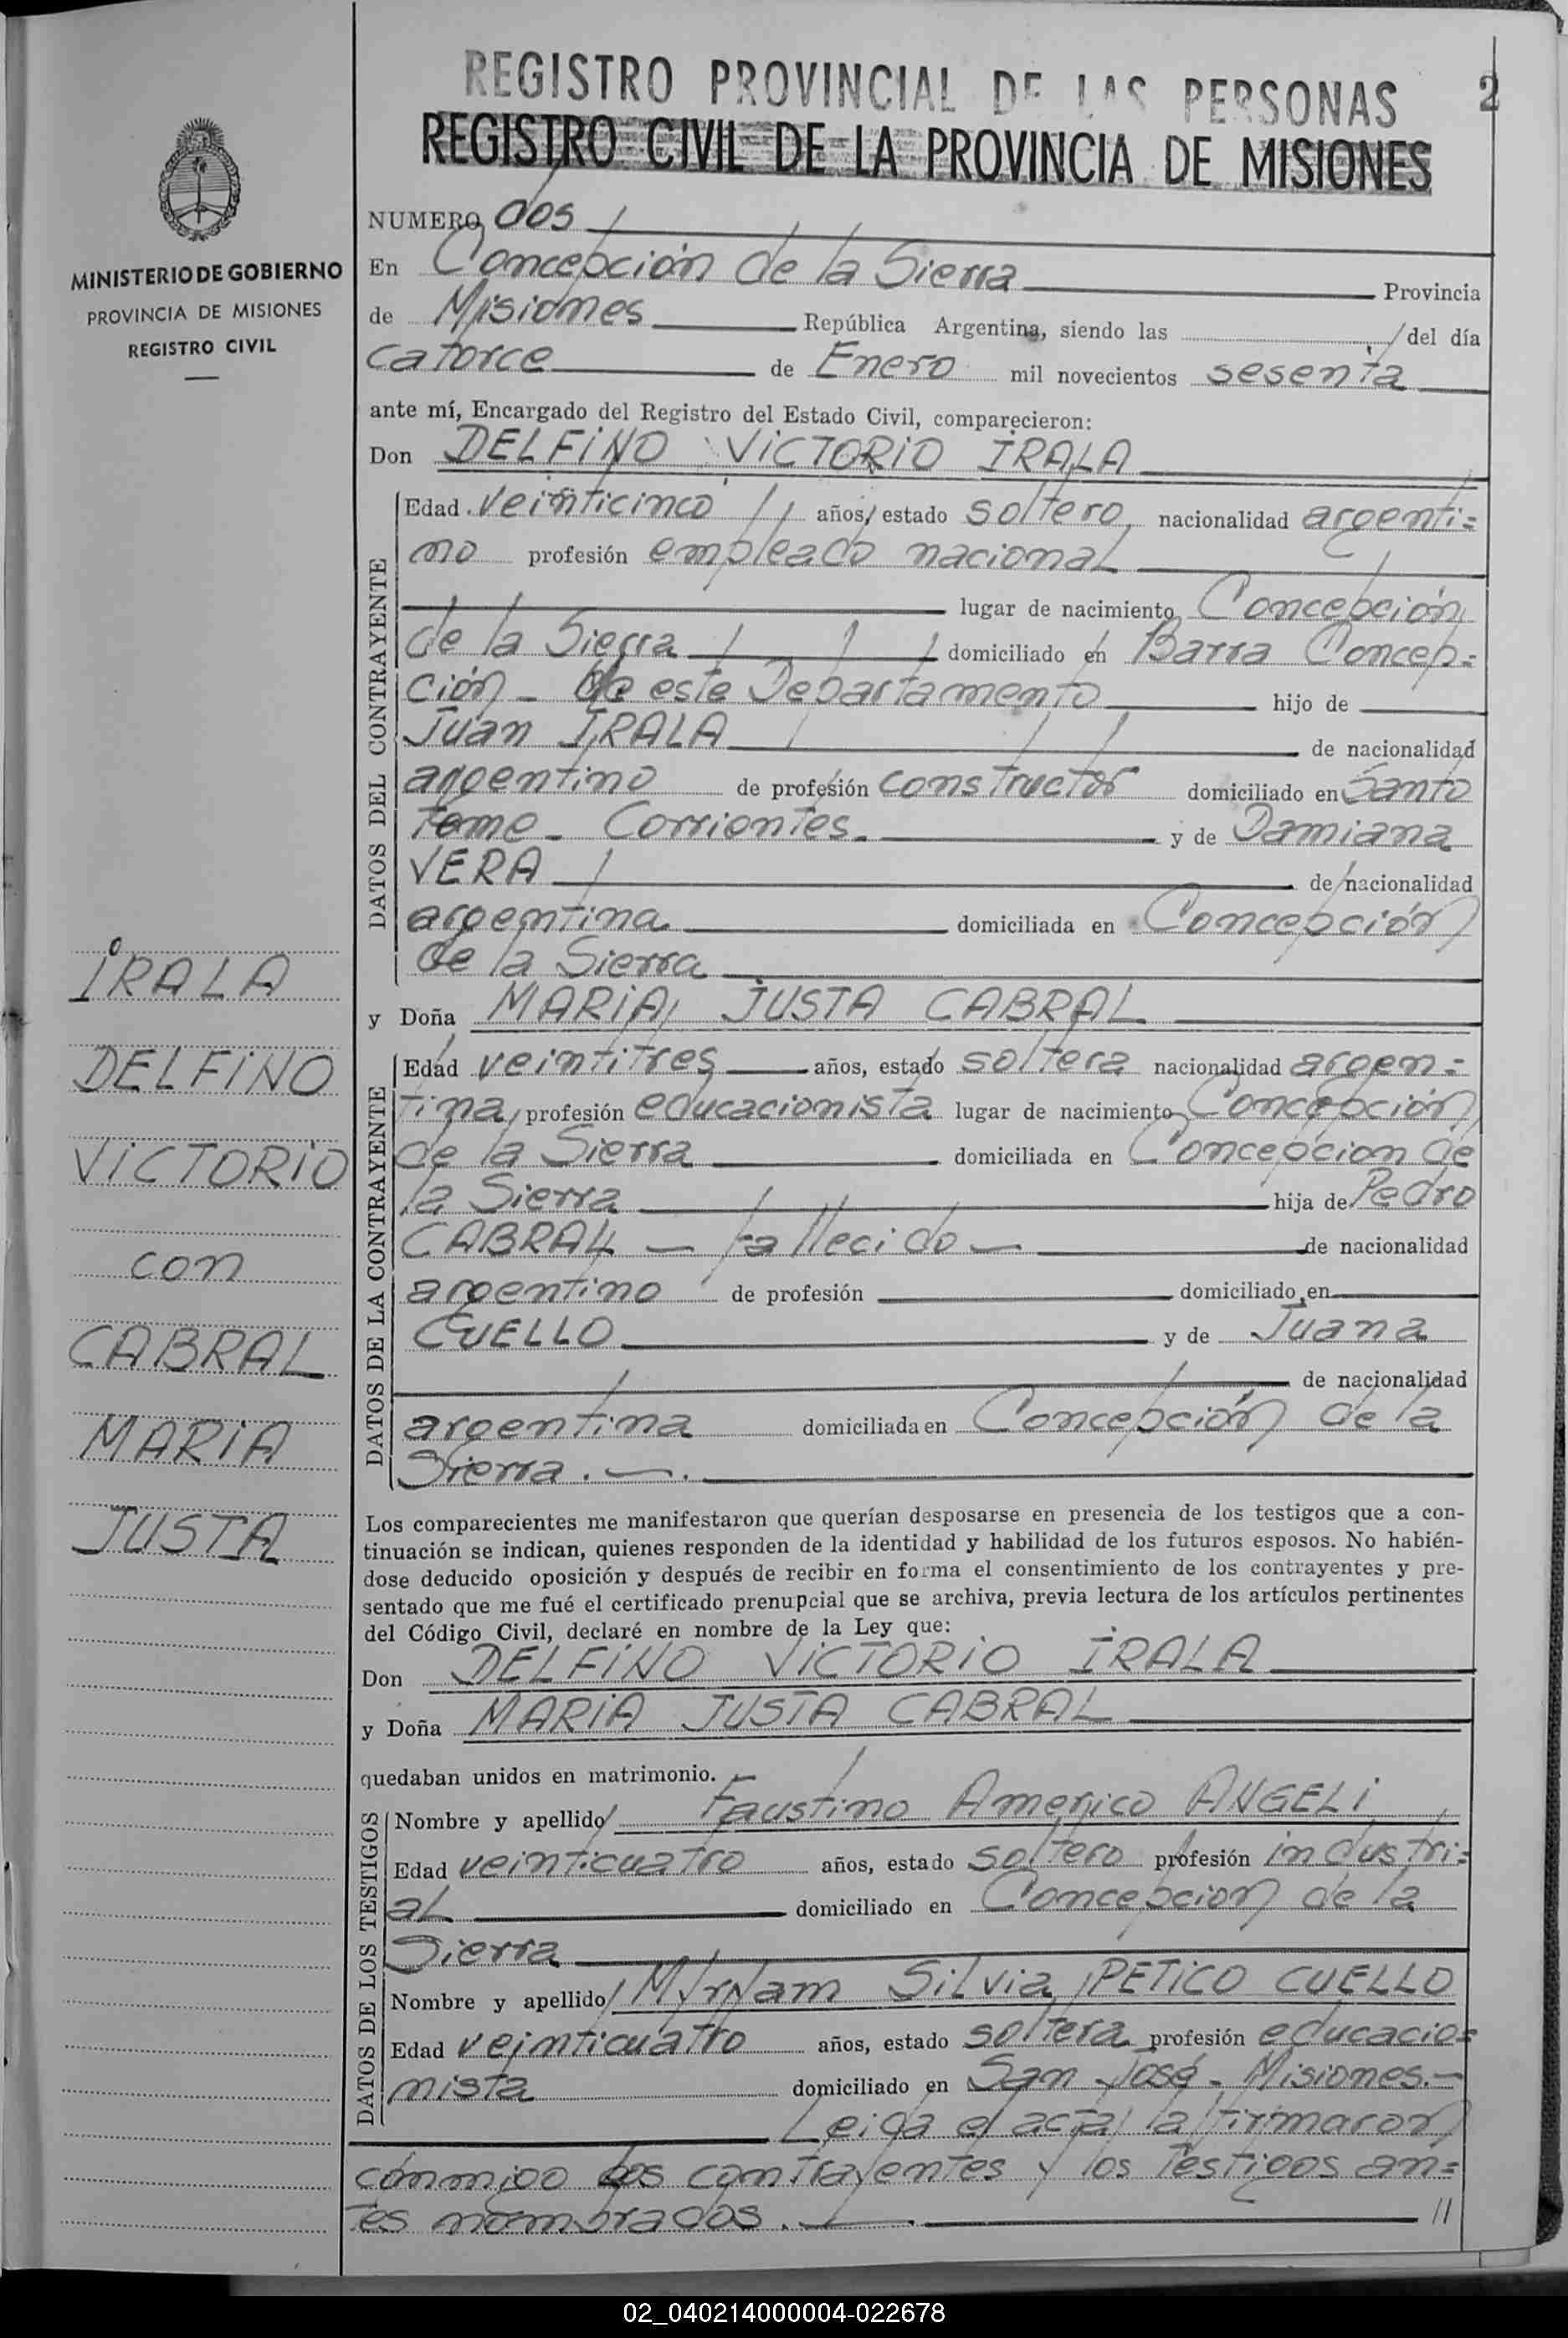 REGISTRO PROVINCIAL DE LAS PERSONAS
2
REGISTRO CIVIL DE LA PROVINCIA DE MISIONES
MINISTERIO DE GOBIERNO
PROVINCIA DE MISIONES
REGISTRO CIVIL
IRALA
DELFINO
VICTORIO
con
CABRAL
MARIA
JUSTA
NUMERO dos
En Concepción de la Sierra Provincia
de Misiones República Argentina, siendo las del día
catorce de Enero mil novecientos sesenta
ante mí, Encargado del Registro del Estado Civil, comparecieron:
Don DELFINO VICTORIO IRALA
DATOS DEL CONTRAYENTE
Edad veinticinco años, estado soltero, nacionalidad argenti=
no profesión empleado nacional
lugar de nacimiento Concepción
de la Sierra domiciliado en Barra Concep=
ción - de este Departamento hijo de
Juan IRALA de nacionalidad
argentino de profesión constructor domiciliado en Santo
Tome - Corrientes. y de Damiana
VERA de nacionalidad
argentina domiciliada en Concepción
de la Sierra
y Doña MARIA JUSTA CABRAL
DATOS DE LA CONTRAYENTE
Edad veintitres años, estado soltera nacionalidad argen=
tina, profesión educacionista lugar de nacimiento Concepción
de la Sierra domiciliada en Concepcion de
la Sierra hija de Pedro
CABRAL - fallecido - de nacionalidad
argentino de profesión domiciliado en
CUELLO y de Juana
de nacionalidad
argentina domiciliada en Concepción de la
Sierra. -.
Los comparecientes me manifestaron que querían desposarse en presencia de los testigos que a con-
tinuación se indican, quienes responden de la identidad y habilidad de los futuros esposos. No habién-
dose deducido oposición y después de recibir en forma el consentimiento de los contrayentes y pre-
sentado que me fué el certificado prenupcial que se archiva, previa lectura de los artículos pertinentes
del Código Civil, declaré en nombre de la Ley que:
Don DELFINO VICTORIO IRALA
y Doña MARIA JUSTA CABRAL
quedaban unidos en matrimonio.
DATOS DE LOS TESTIGOS
Nombre y apellido Faustino Americo ANGELI
Edad veinticuatro años, estado soltero profesión industri=
al domiciliado en Concepcion de la
Sierra
Nombre y apellido Myryam Silvia PETICO CUELLO
Edad veinticuatro años, estado soltera profesión educacio=
nista domiciliado en San José - Misiones.-
Leida el acta, la firmaron
conmigo los contrayentes y los testigos an=
tes nombrados. -. //
02_040214000004-022678